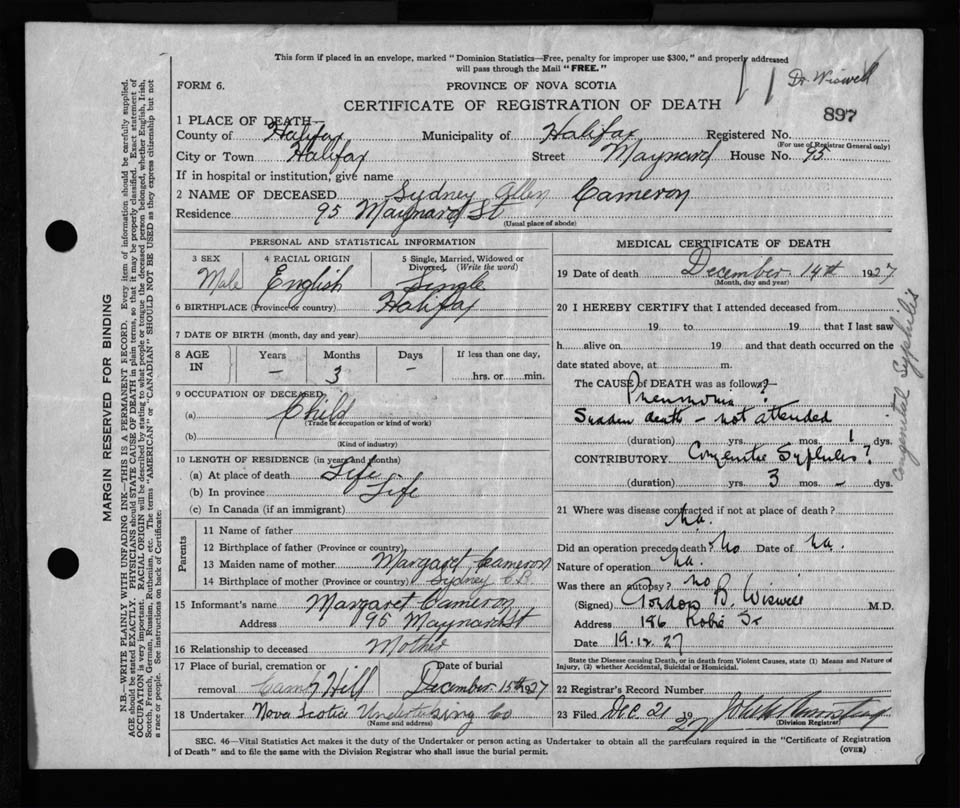 This form if placed in an envelope, marked "Dominion Statistics—Free, penalty for improper use $300," and properly addressed
will pass through the Mail "FREE."
Dr. Wiswell
FORM 6.
PROVINCE OF NOVA SCOTIA
CERTIFICATE OF REGISTRATION OF DEATH
897
1 PLACE OF DEATH—
County of Halifax Municipality of Halifax Registered No.
(For use of Registrar General only)
City or Town Halifax Street Maynard House No. 95
If in hospital or institution, give name
2 NAME OF DECEASED Sydney Allen Cameron
Residence 95 Maynard St
(Usual place of abode)
PERSONAL AND STATISTICAL INFORMATION
3 SEX 4 RACIAL ORIGIN 5 Single, Married, Widowed or
Divorced. (Write the word)
Male English Single
6 BIRTHPLACE (Province or country) Halifax
7 DATE OF BIRTH (month, day and year)
8 AGE IN Years Months Days If less than one day,
— 3 — hrs. or min.
9 OCCUPATION OF DECEASED
(a) Child
(Trade or occupation or kind of work)
(b)
(Kind of industry)
10 LENGTH OF RESIDENCE (in years and months)
(a) At place of death Life
(b) In province Life
(c) In Canada (if an immigrant)
Parents
11 Name of father
12 Birthplace of father (Province or country)
13 Maiden name of mother Margaret Cameron
14 Birthplace of mother (Province or country) Sydney C.B.
15 Informant's name Margaret Cameron
Address 95 Maynard St
16 Relationship to deceased Mother
17 Place of burial, cremation or Date of burial
removal Camp Hill December 15th 1927
18 Undertaker Nova Scotia Undertaking Co
(Name and address)
MEDICAL CERTIFICATE OF DEATH
19 Date of death December 14th 1927
(Month, day and year)
20 I HEREBY CERTIFY that I attended deceased from
19 to 19 that I last saw
h alive on 19 and that death occurred on the
date stated above, at m.
The CAUSE of DEATH was as follows:—
Pneumonia ?
Sudden death — not attended
(duration) yrs. mos. 1 dys.
CONTRIBUTORY Congenital Syphilis?
(duration) yrs. 3 mos. – dys.
Congenital Syphilis
21 Where was disease contracted if not at place of death?
na.
Did an operation precede death? no Date of na.
Nature of operation na.
Was there an autopsy? no
(Signed) Gordon B. Wiswell M.D.
Address 186 Robie St
Date 19.12.27
State the Disease causing Death, or in death from Violent Causes, state (1) Means and Nature of
Injury, (2) whether Accidental, Suicidal or Homicidal.
22 Registrar's Record Number
23 Filed Dec 21 1927
(Division Registrar)
SEC. 46—Vital Statistics Act makes it the duty of the Undertaker or person acting as Undertaker to obtain all the particulars required in the "Certificate of Registration
of Death" and to file the same with the Division Registrar who shall issue the burial permit.
(OVER)
MARGIN RESERVED FOR BINDING
N.B.—WRITE PLAINLY WITH UNFADING INK—THIS IS A PERMANENT RECORD. Every item of information should be carefully supplied.
AGE should be stated EXACTLY. PHYSICIANS should STATE CAUSE OF DEATH in plain terms, so that it may be properly classified. Exact statement of
OCCUPATION is very important. RACIAL ORIGIN will be described by stating to what people or tongue the deceased person belonged, whether English, Irish,
Scotch, French, German, Russian, Ruthenian, etc. The terms "AMERICAN" or "CANADIAN" SHOULD NOT BE USED as they express citizenship but not
a race or people. See instructions on back of Certificate.